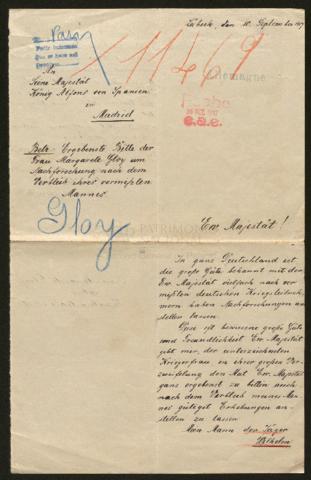 Lübeck, den 10. September 1917
Paris
11469
Allemagne
An
Seine Majestät
König Alfons von Spanien
zu
Madrid
Betr. Ergebenste Bitte der
Frau Margarete Gloy um
Nachforschung nach dem
Verbleib ihres vermißten
Mannes
Gloy
PATRIMONIO
Ew. Majestät!
In ganz Deutschland ist
die große Güte bekannt mit der
Ew. Majestät vielfach nach ver-
mißten deutschen Kriegsteilneh-
mern haben Nachforschungen an-
stellen lassen.
Diese ist bewiesene große Güte
und Freundlichkeit Ew. Majestät
gibt mir, der unterzeichneten
Kriegerfrau in ihrer großen Ver-
zweiflung den Mut Ew. Majestät
ganz ergebenst zu bitten auch
nach dem Verbleib meines Man-
nes gütigst Erhebungen an-
stellen zu lassen
Mein Mann der Jäger
Wilhelm